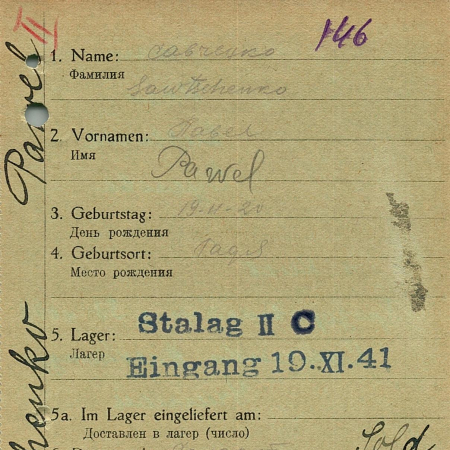 II
146
1. Name: Савченко
Фамилия
Sawtschenko
2. Vornamen: Павел
Имя
Pawel
3. Geburtstag: 19-VI-20
День рождения
4. Geburtsort:
Место рождения
5. Lager: Stalag II C
Лагер
Eingang 19.XI.41
5a. Im Lager eingeliefert am:
Доставлен в лагер (число)
Sold
henko Pawel